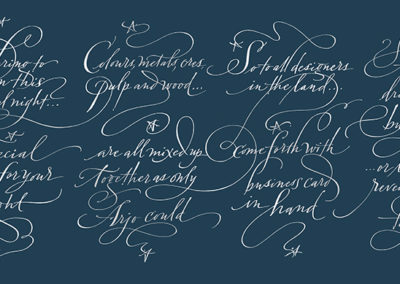 to
this
night...
for your
Colours, metals, ores
Pulp and wood...
are all mixed up
Together as only
Arjo could
So to all designers
in the land...
come forth with
business card
in hand